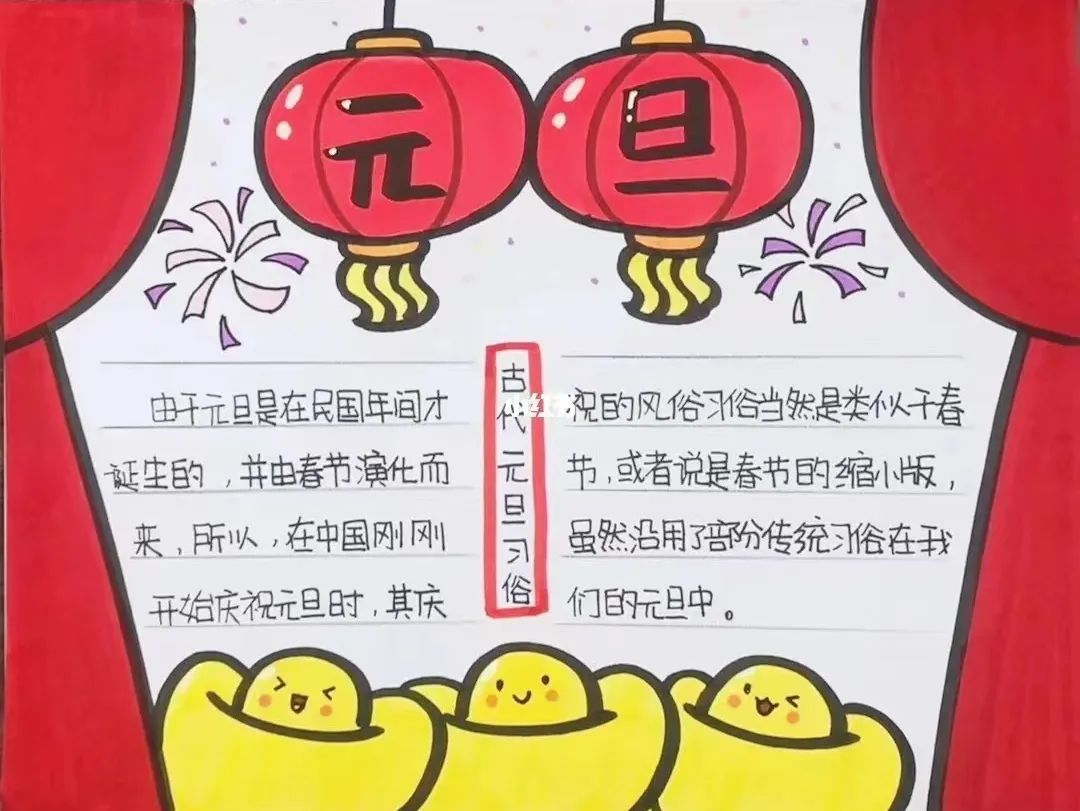 元旦
由于元旦是在民国年间才
诞生的，并由春节演化而
来，所以，在中国刚刚
开始庆祝元旦时，其庆
古代元旦习俗
小红书
祝的风俗习俗当然是类似于春
节，或者说是春节的缩小版，
虽然沿用了部份传统习俗在我
们的元旦中。